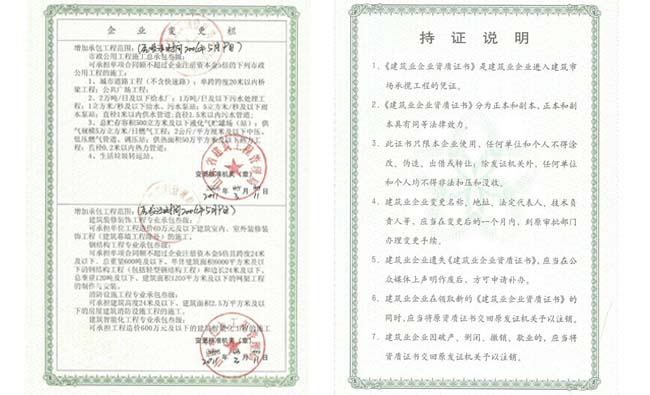 企业变更栏
增加承包工程范围：
市政公用工程施工总承包叁级：
可承担单项合同额不超过企业注册资本金5倍的下列市政
公用工程的施工：
1、城市道路工程（不含快速路）；单跨跨度20米以内桥
梁工程；公共广场工程；
2、2万吨/日及以下给水厂；1万吨/日及以下污水处理工
程；1立方米/秒及以下给水、污水泵站；5立方米/秒及以下雨
水泵站；直径1米以内供水管道；直径1.5米以内污水管道；
3、总贮存容积500立方米及以下液化气贮罐场（站）；供
气规模5万立方米/日燃气工程；2公斤/平方厘米及以下中压、
低压燃气管道、调压站；供热面积50万平方米及以下热力工
程；直径0.2米以内热力管道；
4、生活垃圾转运站。
变更核准机关（章）
增加承包工程范围：
建筑装修装饰工程专业承包叁级：
可承担单位工程造价60万元及以下建筑室内、室外装修装
饰工程（建筑幕墙工程除外）的施工。
钢结构工程专业承包叁级：
可承担单项合同额不超过企业注册资本金5倍且跨度24米
及以下、总重量600吨及以下、单体建筑面积6000平方米及以
下的钢结构工程（包括轻型钢结构工程）和边长24米及以下、
总重量120吨及以下、建筑面积1200平方米及以下的网架工程
的制作与安装。
消防设施工程专业承包叁级：
可承担建筑高度24米及以下、建筑面积2.5万平方米及以
下的房屋建筑消防设施工程的施工。
建筑智能化工程专业承包叁级：
可承担工程造价600万元及以下的建筑智能化工程的施工
变更核准机关（章）
持证说明
1、《建筑业企业资质证书》是建筑业企业进入建筑市
场承揽工程的凭证。
2、《建筑业企业资质证书》分为正本和副本，正本和副
本具有同等法律效力。
3、此证书只限本企业使用，任何单位和个人不得涂
改、伪造、出借或转让；除发证机关外，任何单位
和个人均不得非法扣压和没收。
4、建筑业企业变更名称、地址、法定代表人、技术负
责人等，应当在变更后的一个月内，到原审批部门
办理变更手续。
5、建筑业企业遗失《建筑业企业资质证书》，应当在公
众媒体上声明作废后，方可申请补办。
6、建筑业企业在领取新的《建筑业企业资质证书》的
同时，应当将原资质证书交回原发证机关予以注销。
7、建筑业企业因破产、倒闭、撤销、歇业的，应当将
资质证书交回原发证机关予以注销。